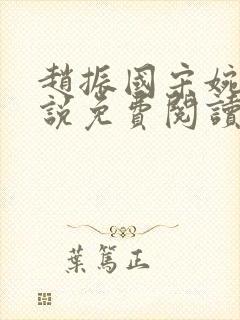 趙振國宋婉
說免費閱讀
葉篤正